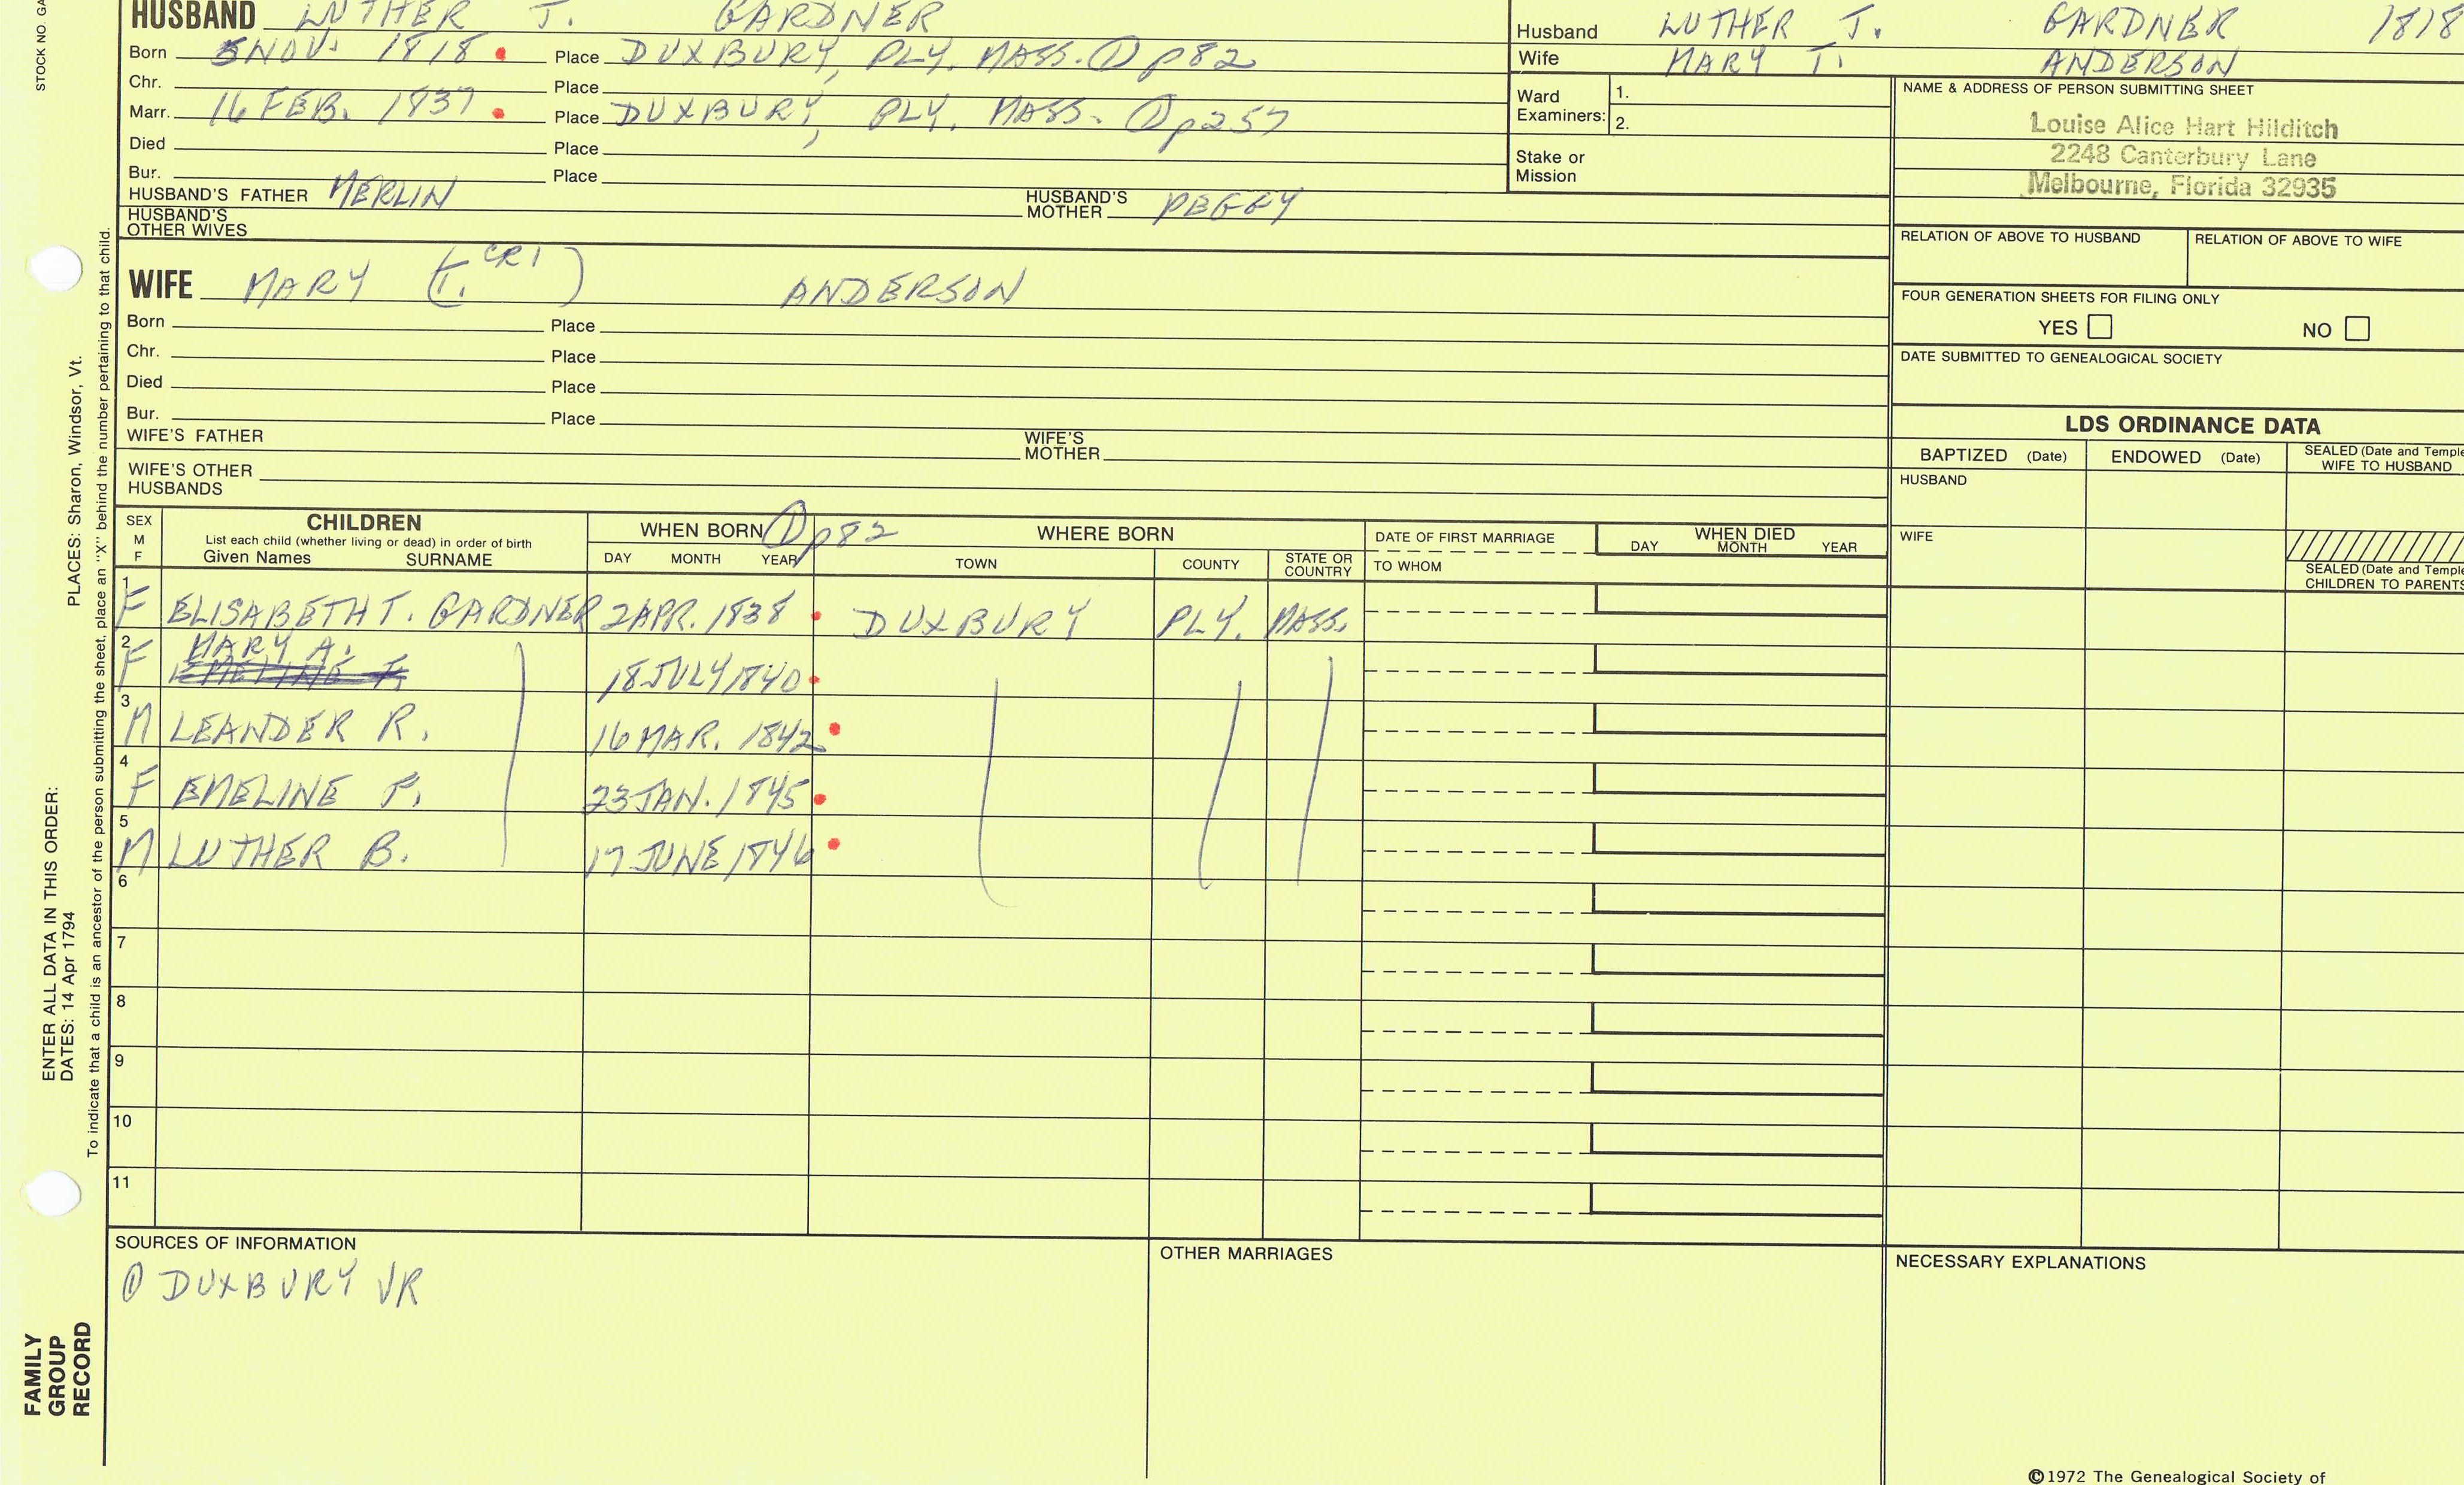 STOCK NO. GA
HUSBAND LUTHER J. GARDNER
Born 5 NOV. 1818 Place DUXBURY, PLY. MASS. ① p82
Chr. Place
Marr. 16 FEB. 1837 Place DUXBURY, PLY. MASS. ① p257
Died Place
Bur. Place
HUSBAND'S FATHER MERLIN HUSBAND'S MOTHER PEGGY
HUSBAND'S OTHER WIVES
Husband LUTHER J. GARDNER 1818
Wife MARY T. ANDERSON
Ward Examiners: 1.
2.
Stake or Mission
NAME & ADDRESS OF PERSON SUBMITTING SHEET
Louise Alice Hart Hilditch
2248 Canterbury Lane
Melbourne, Florida 32935
RELATION OF ABOVE TO HUSBAND RELATION OF ABOVE TO WIFE
FOUR GENERATION SHEETS FOR FILING ONLY
YES NO
DATE SUBMITTED TO GENEALOGICAL SOCIETY
WIFE MARY (T. CR1) ANDERSON
Born Place
Chr. Place
Died Place
Bur. Place
WIFE'S FATHER WIFE'S MOTHER
WIFE'S OTHER HUSBANDS
LDS ORDINANCE DATA
BAPTIZED (Date) ENDOWED (Date) SEALED (Date and Temple
WIFE TO HUSBAND
HUSBAND
WIFE
SEALED (Date and Temple
CHILDREN TO PARENTS
SEX M F
CHILDREN
List each child (whether living or dead) in order of birth
Given Names SURNAME
WHEN BORN ① p82
DAY MONTH YEAR
WHERE BORN
TOWN COUNTY STATE OR COUNTRY
DATE OF FIRST MARRIAGE
TO WHOM
WHEN DIED
DAY MONTH YEAR
1 F ELISABETH T. GARDNER 2 APR. 1838 DUXBURY PLY. MASS.
2 F MARY A. 18 JULY 1840
EMELINE F.
3 M LEANDER R. 16 MAR. 1842
4 F EMELINE F. 23 JAN. 1845
5 M LUTHER B. 17 JUNE 1846
6
7
8
9
10
11
SOURCES OF INFORMATION
① DUXBURY VR
OTHER MARRIAGES
NECESSARY EXPLANATIONS
©1972 The Genealogical Society of
ENTER ALL DATA IN THIS ORDER:
DATES: 14 Apr 1794 PLACES: Sharon, Windsor, Vt.
To indicate that a child is an ancestor of the person submitting the sheet, place an "X" behind the number pertaining to that child.
FAMILY
GROUP
RECORD